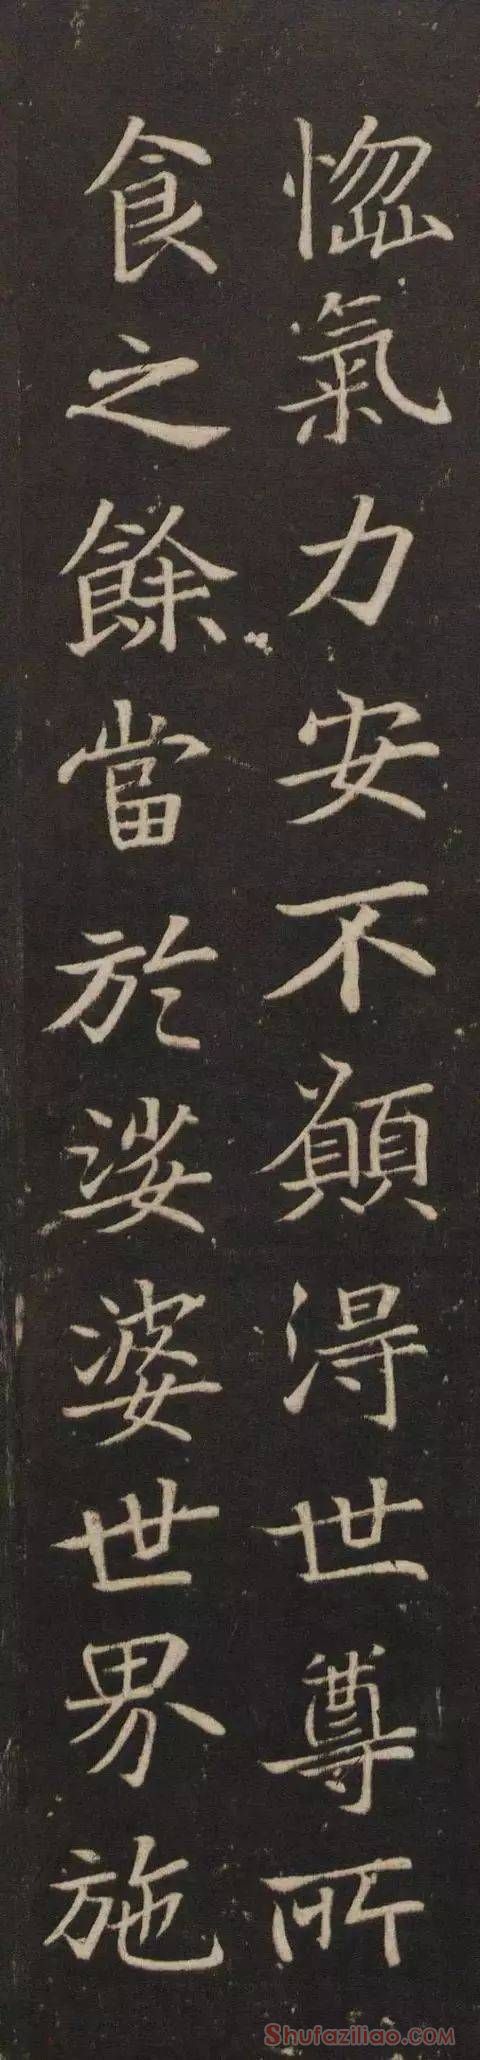 惱氣力安不願得世尊所
食之餘當於娑婆世界施
Shufaziliao.com